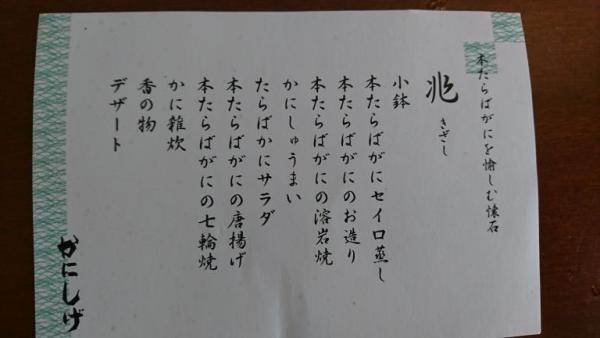 本たらばがにを愉しむ懐石
兆
きざし
小鉢
本たらばがにセイロ蒸し
本たらばがにのお造り
本たらばがにの溶岩焼
かにしゅうまい
たらばかにサラダ
本たらばがにの唐揚げ
本たらばがにの七輪焼
かに雑炊
香の物
デザート
かにしげ